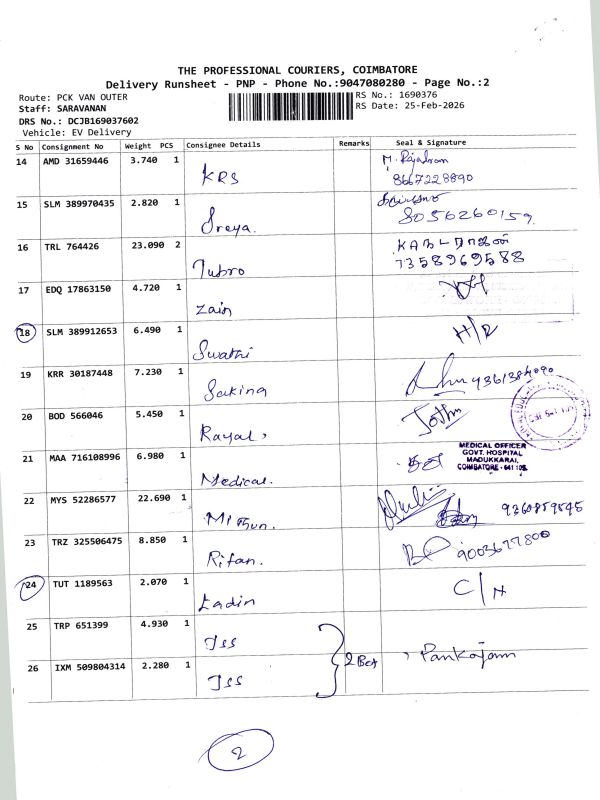 THE PROFESSIONAL COURIERS, COIMBATORE
Delivery Runsheet - PNP - Phone No.:9047080280 - Page No.:2
Route: PCK VAN OUTER
RS No.: 1690376
Staff: SARAVANAN
RS Date: 25-Feb-2026
DRS No.: DCJB169037602
Vehicle: EV Delivery
S No Consignment No Weight PCS Consignee Details Remarks Seal & Signature
14 AMD 31659446 3.740 1 KRS M. Rajadran
8667228890
15 SLM 389970435 2.820 1 Sreya.
8056260159
16 TRL 764426 23.090 2 Tubro
7358969588
17 EDQ 17863150 4.720 1 Zain
18 SLM 389912653 6.490 1 Swathi H/R
19 KRR 30187448 7.230 1 Sakina
20 BOD 566046 5.450 1 Rayal, Jothi
21 MAA 716108996 6.980 1 Medical.
MEDICAL OFFICER
GOVT. HOSPITAL
MADUKKARAI,
COIMBATORE - 641 105.
22 MYS 52286577 22.690 1 Mithun.
23 TRZ 325506475 8.850 1 Rifan.
24 TUT 1189563 2.070 1 Ladin C/N
25 TRP 651399 4.930 1 JSS
2 Box , Pankajam
26 IXM 509804314 2.280 1 JSS
2